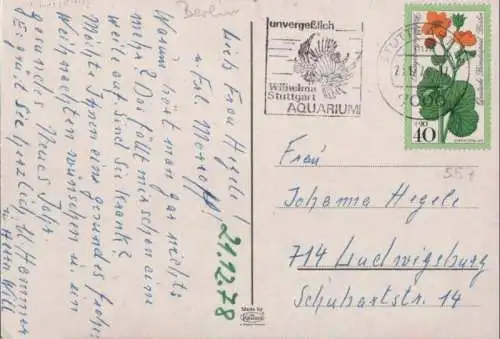 Berlin
Lieb Frau Hegele!
u. Frl.
Warum hört man gar nichts
mehr? Das fällt mir schon eine
weile auf. Sind Sie krank?
Möchte Ihnen ein gesundes frohes
Weihnachten wünschen u. ein
gesundes Neues Jahr.
Es grüßt Sie herzlich, M. Hammer
u. Herr
21.12.78
unvergeßlich
Wilhelma
Stuttgart
AQUARIUM
STUTTG
7000
40
Frau
Johanna Hegele
557
714 Ludwigsburg
Schubartstr. 14
Made by